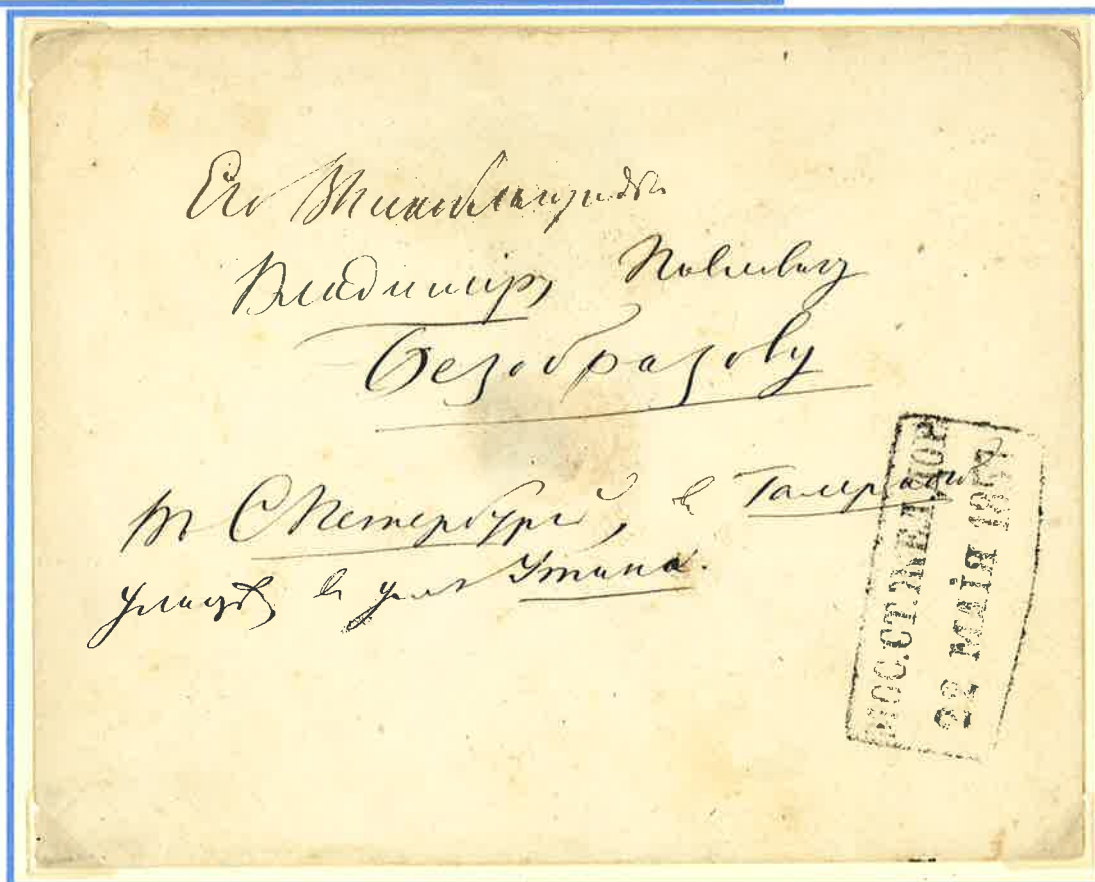 Его Высокоблагородію
Владиміру Павловичу
Безобразову
въ С Петербургѣ, в Галерной
улицѣ, в домѣ Утина.
МОС.СТ.ЖЕЛ.ДОР
22 МАІЯ 1857